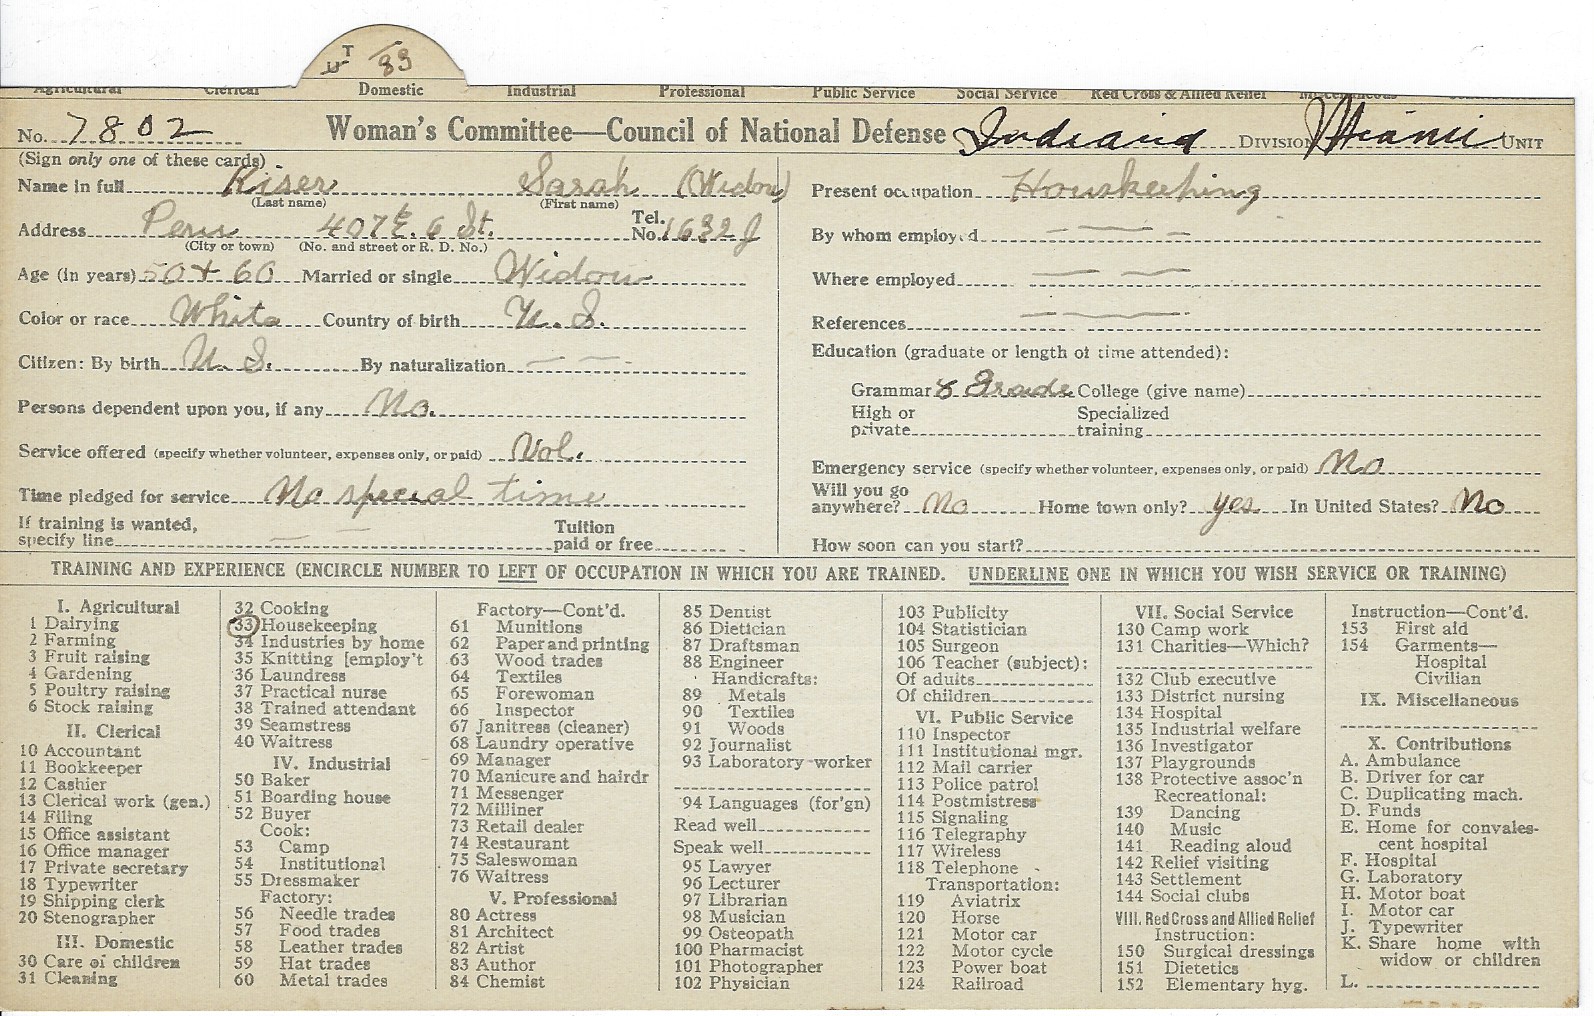 T
33
Agricultural Clerical Domestic Industrial Professional Public Service Social Service Red Cross & Allied Relief Miscellaneous
No. 7802 Woman's Committee—Council of National Defense Indiana Division Miami Unit
(Sign only one of these cards)
Name in full Kiser Sarah (Widow)
(Last name) (First name)
Address Peru 407 E. 6 St. Tel. No. 1632 J
(City or town) (No. and street or R. D. No.)
Age (in years) 50 + 60 Married or single Widow
Color or race White Country of birth U. S.
Citizen: By birth U. S. By naturalization — —
Persons dependent upon you, if any No.
Service offered (specify whether volunteer, expenses only, or paid) Vol.
Time pledged for service No special time
If training is wanted, specify line — — Tuition paid or free
Present occupation Houskeeping
By whom employed — —
Where employed — —
References — —
Education (graduate or length of time attended):
Grammar 8 Grade College (give name)
High or private Specialized training
Emergency service (specify whether volunteer, expenses only, or paid) No
Will you go anywhere? No Home town only? yes In United States? No
How soon can you start?
TRAINING AND EXPERIENCE (ENCIRCLE NUMBER TO LEFT OF OCCUPATION IN WHICH YOU ARE TRAINED. UNDERLINE ONE IN WHICH YOU WISH SERVICE OR TRAINING)
I. Agricultural
1 Dairying
2 Farming
3 Fruit raising
4 Gardening
5 Poultry raising
6 Stock raising
II. Clerical
10 Accountant
11 Bookkeeper
12 Cashier
13 Clerical work (gen.)
14 Filing
15 Office assistant
16 Office manager
17 Private secretary
18 Typewriter
19 Shipping clerk
20 Stenographer
III. Domestic
30 Care of children
31 Cleaning
32 Cooking
33 Housekeeping
34 Industries by home
35 Knitting [employ't
36 Laundress
37 Practical nurse
38 Trained attendant
39 Seamstress
40 Waitress
IV. Industrial
50 Baker
51 Boarding house
52 Buyer
Cook:
53 Camp
54 Institutional
55 Dressmaker
Factory:
56 Needle trades
57 Food trades
58 Leather trades
59 Hat trades
60 Metal trades
Factory—Cont'd.
61 Munitions
62 Paper and printing
63 Wood trades
64 Textiles
65 Forewoman
66 Inspector
67 Janitress (cleaner)
68 Laundry operative
69 Manager
70 Manicure and hairdr
71 Messenger
72 Milliner
73 Retail dealer
74 Restaurant
75 Saleswoman
76 Waitress
V. Professional
80 Actress
81 Architect
82 Artist
83 Author
84 Chemist
85 Dentist
86 Dietician
87 Draftsman
88 Engineer
Handicrafts:
89 Metals
90 Textiles
91 Woods
92 Journalist
93 Laboratory worker
94 Languages (for'gn)
Read well
Speak well
95 Lawyer
96 Lecturer
97 Librarian
98 Musician
99 Osteopath
100 Pharmacist
101 Photographer
102 Physician
103 Publicity
104 Statistician
105 Surgeon
106 Teacher (subject):
Of adults
Of children
VI. Public Service
110 Inspector
111 Institutional mgr.
112 Mail carrier
113 Police patrol
114 Postmistress
115 Signaling
116 Telegraphy
117 Wireless
118 Telephone
Transportation:
119 Aviatrix
120 Horse
121 Motor car
122 Motor cycle
123 Power boat
124 Railroad
VII. Social Service
130 Camp work
131 Charities—Which?
132 Club executive
133 District nursing
134 Hospital
135 Industrial welfare
136 Investigator
137 Playgrounds
138 Protective assoc'n
Recreational:
139 Dancing
140 Music
141 Reading aloud
142 Relief visiting
143 Settlement
144 Social clubs
VIII. Red Cross and Allied Relief
Instruction:
150 Surgical dressings
151 Dietetics
152 Elementary hyg.
Instruction—Cont'd.
153 First aid
154 Garments—
Hospital
Civilian
IX. Miscellaneous
X. Contributions
A. Ambulance
B. Driver for car
C. Duplicating mach.
D. Funds
E. Home for convales-
cent hospital
F. Hospital
G. Laboratory
H. Motor boat
I. Motor car
J. Typewriter
K. Share home with
widow or children
L.